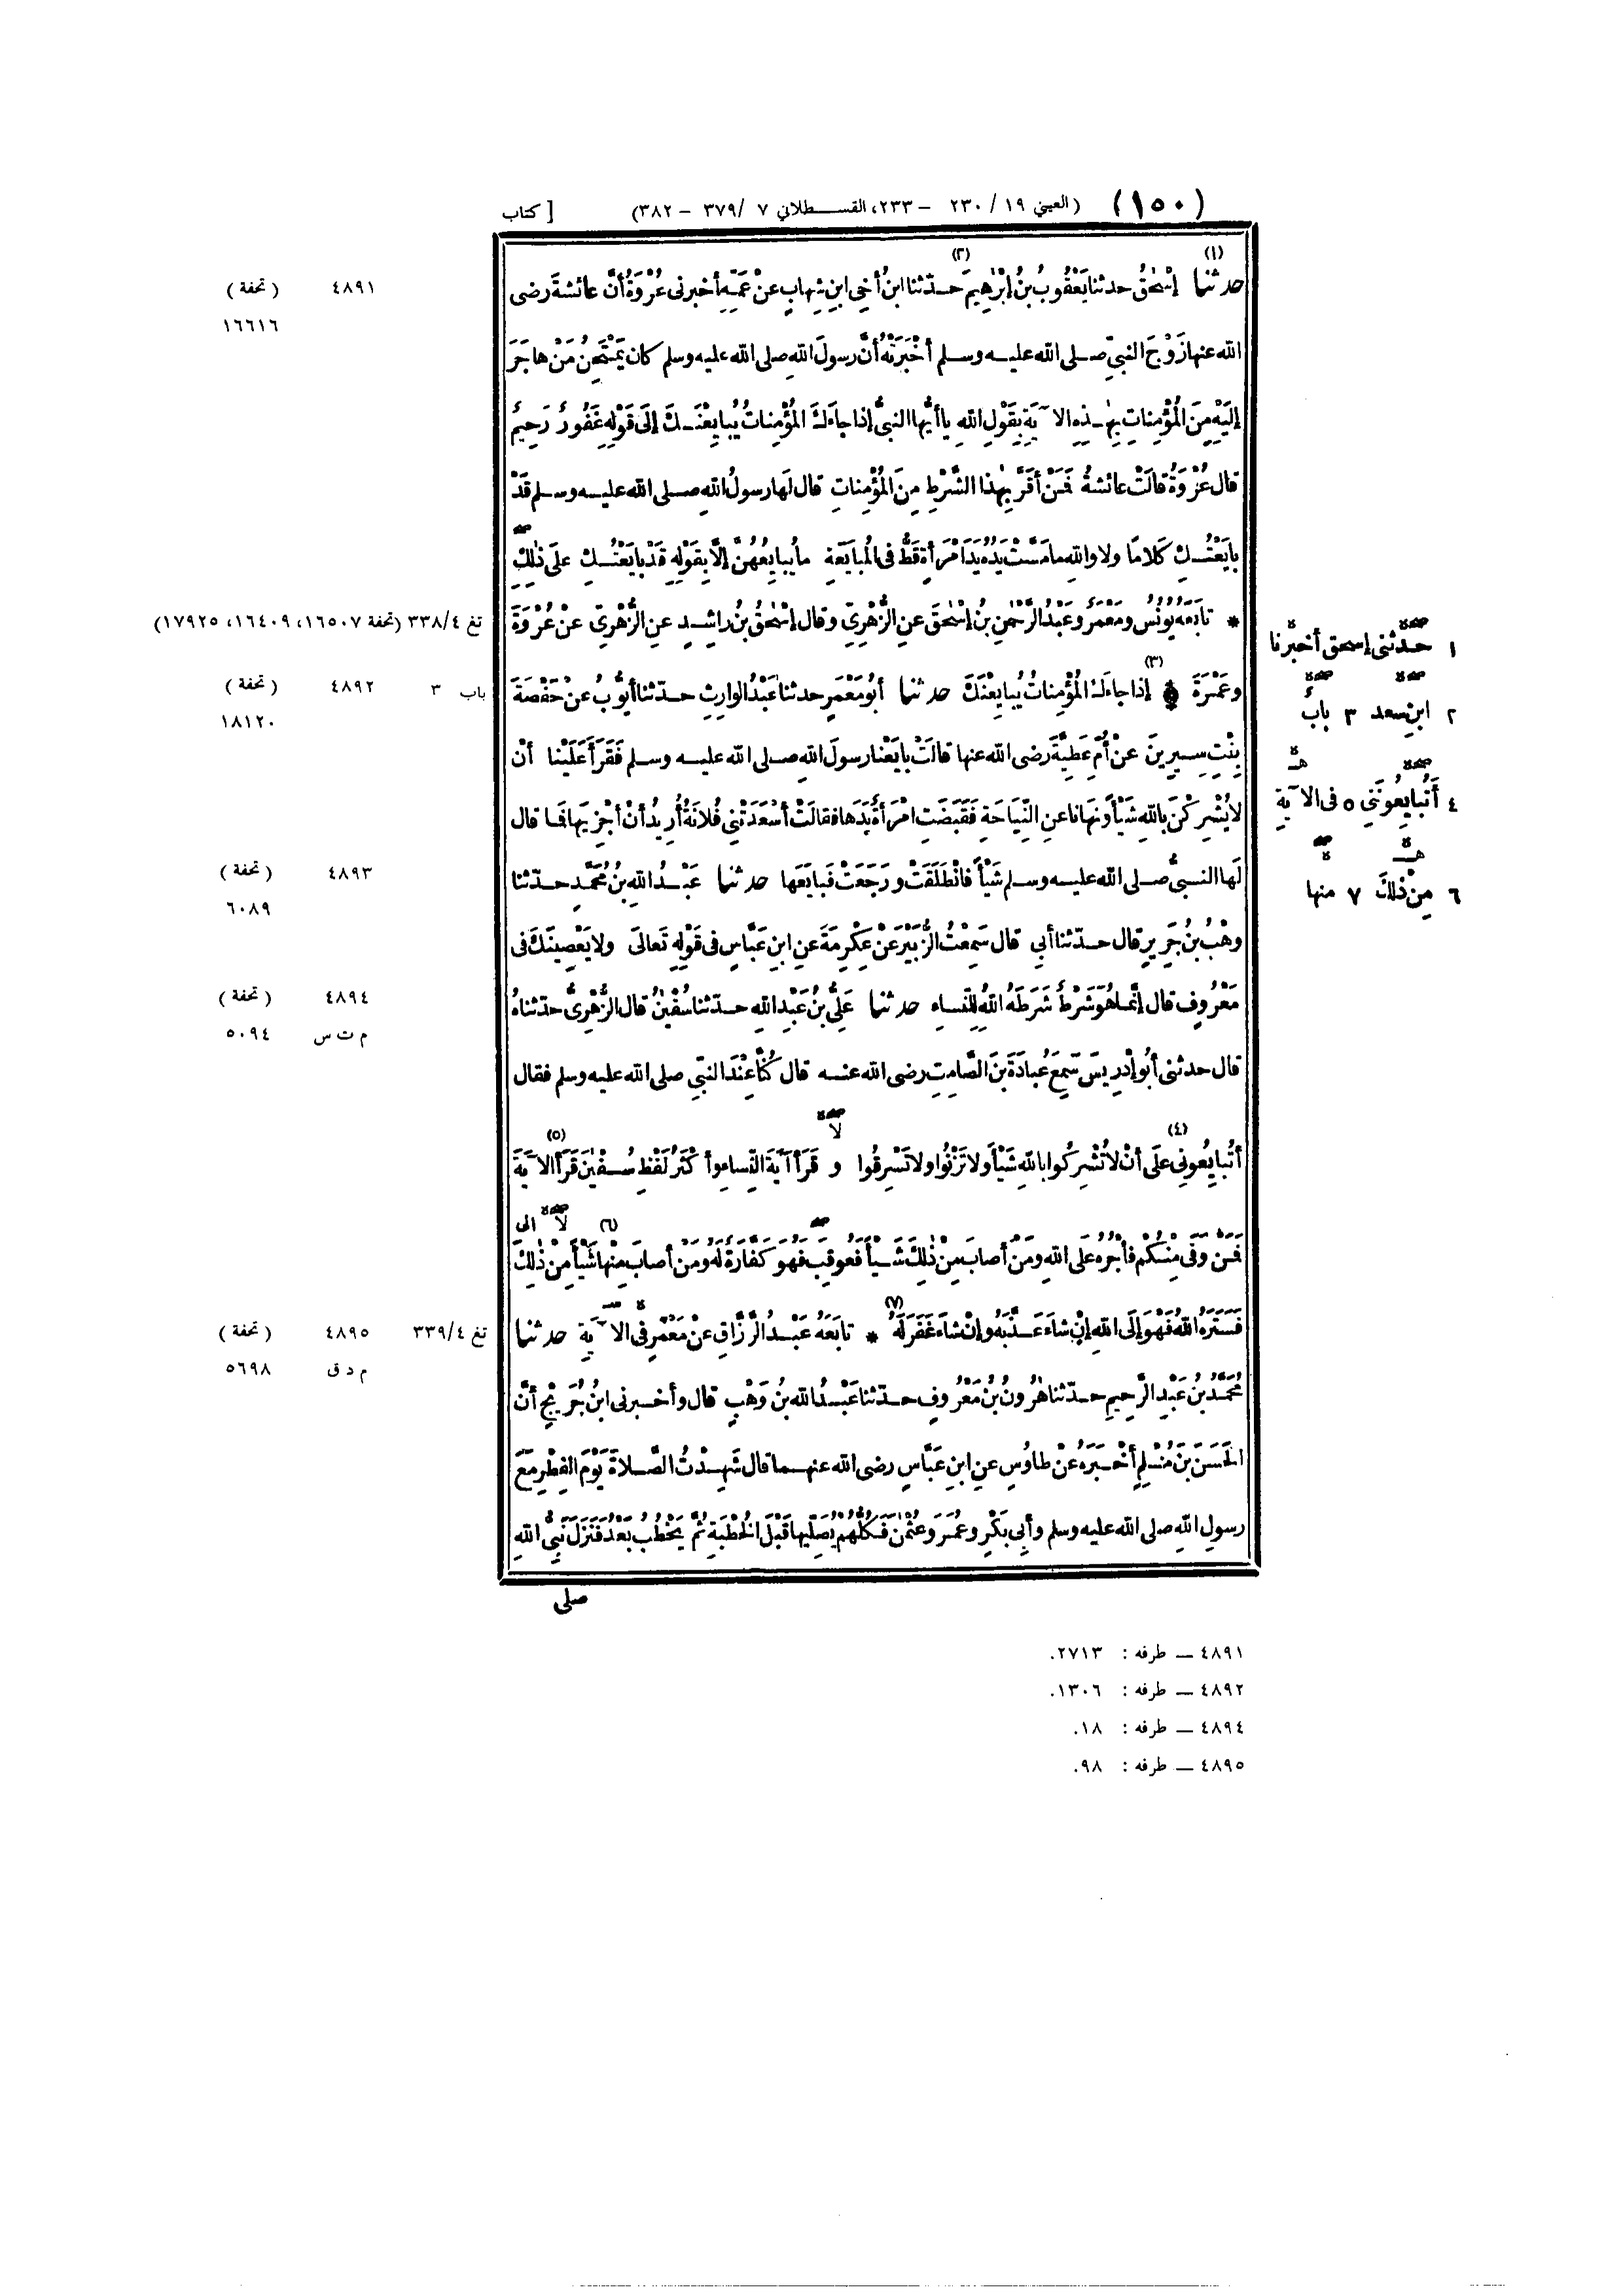 (١٥٠) (العيني ١٩ / ٢٣٠ – ٢٣٣، القسطلاني ٧ /٣٧٩ – ٣٨٢) [ كتاب
(١) (٢)
حدثنا إِسْحٰقُ حدثنا يَعْقُوبُ بنُ إبْرٰهِيمَ حدّثنا ابنُ أخِى ابنِ شِهابٍ عنْ عَمِّهِ أخبرنى عُرْوَةُ أنَّ عائشةَ رضى
الله عنها زَوْجَ النبىِّ صلى الله عليه وسلم أخْبَرَتْهُ أنَّ رسولَ اللهِ صلى الله عليه وسلم كان يَمْتَحِنُ مَنْ هاجَرَ
إلَيْهِ مِنَ المُؤْمِناتِ بِهٰذِهِ الآيَةِ بِقَوْلِ اللهِ ياأيُّها النبىُّ إذا جاءَكَ المُؤْمِناتُ يُبايِعْنَكَ إلَى قَوْلِهِ غَفُورٌ رَحِيمٌ
قال عُرْوَةُ قالَتْ عائشةُ فَمَنْ أقَرَّ بِهٰذا الشَّرْطِ مِنَ المُؤْمِناتِ قال لَها رسولُ اللهِ صلى الله عليه وسلم قَدْ
بايَعْتُكِ كَلامًا ولا واللهِ مامَسَّتْ يَدُهُ يَدَ امْرَأةٍ قَطُّ فى المُبايَعَةِ مايُبايِعُهُنَّ إلَّا بِقَوْلِهِ قَدْ بايَعْتُكِ علَى ذٰلِكَ
* تابَعَهُ يُونُسُ ومَعْمَرٌ وعَبْدُ الرَّحْمٰنِ بنُ إِسْحٰقَ عنِ الزُّهْرِىِّ وقال إِسْحٰقُ بنُ راشِدٍ عنِ الزُّهْرِىِّ عنْ عُرْوَةَ
(٣)
وعَمْرَةَ إذا جاءَكَ المُؤْمِناتُ يُبايِعْنَكَ حدثنا أبُو مَعْمَرٍ حدثنا عَبْدُ الوارِثِ حدّثنا أيُّوبُ عنْ حَفْصَةَ
بِنْتِ سِيرِينَ عنْ أُمِّ عَطِيَّةَ رضى الله عنها قالَتْ بايَعْنا رسولَ اللهِ صلى الله عليه وسلم فَقَرَأَ عَلَيْنا أنْ
لايُشْرِكْنَ بِاللهِ شَيْأً ونَهانا عنِ النِّياحَةِ فَقَبَضَتِ امْرَأةٌ يَدَها فقالَتْ أسْعَدَتْنِى فُلانَةُ أُرِيدُ أنْ أجْزِيَها فَما قال
لَها النبىُّ صلى الله عليه وسلم شَيْأً فانْطَلَقَتْ ورَجَعَتْ فَبايَعَها حدثنا عَبْدُ اللهِ بنُ مُحَمَّدٍ حدّثنا
وهْبُ بنُ جَرِيرٍ قال حدّثنا أبِى قال سَمِعْتُ الزُّبَيْرَ عنْ عِكْرِمَةَ عنِ ابنِ عَبَّاسٍ فى قَوْلِهِ تَعالَى ولا يَعْصِينَكَ فى
مَعْرُوفٍ قال إنَّما هُوَ شَرْطٌ شَرَطَهُ اللهُ لِلنِّساءِ حدثنا عَلِىُّ بنُ عَبْدِ اللهِ حدّثنا سُفْيٰنُ قال الزُّهْرِىُّ حدّثناهُ
قال حدثنى أبُو إدْرِيسَ سَمِعَ عُبادَةَ بنَ الصَّامِتِ رضى الله عنه قال كُنَّا عِنْدَ النبىِّ صلى الله عليه وسلم فقال
(٤) لا (٥)
أتُبايِعُونِى علَى أنْ لاتُشْرِكُوا بِاللهِ شَيْأً ولا تَزْنُوا ولا تَسْرِقُوا و قَرَأَ آيَةَ النِّساءِ وأكْثَرُ لَفْظِ سُفْيٰنَ قَرَأَ الآيَةَ
(٦) لا الى
فَمَنْ وَفَى مِنْكُمْ فأجْرُهُ علَى اللهِ ومَنْ أصابَ مِنْ ذٰلِكَ شَيْأً فَعُوقِبَ فهُوَ كَفَّارَةٌ لَهُ ومَنْ أصابَ مِنْها شَيْأً مِنْ ذٰلِكَ
(٧)
فَسَتَرَهُ اللهُ فَهْوَ إلَى اللهِ إنْ شاءَ عَذَّبَهُ وإنْ شاءَ غَفَرَ لَهُ * تابَعَهُ عَبْدُ الرَّزَّاقِ عنْ مَعْمَرٍ فى الآيَةِ حدثنا
مُحَمَّدُ بنُ عَبْدِ الرَّحِيمِ حدّثنا هٰرُونُ بنُ مَعْرُوفٍ حدّثنا عَبْدُ اللهِ بنُ وَهْبٍ قال وأخبرنى ابنُ جُرَيْجٍ أنَّ
الحَسَنَ بنَ مُسْلِمٍ أخْبَرَهُ عنْ طاوُسٍ عنِ ابنِ عَبَّاسٍ رضى الله عنهما قال شَهِدْتُ الصَّلاةَ يَوْمَ الفِطْرِ مَعَ
رسولِ اللهِ صلى الله عليه وسلم وأبِى بَكْرٍ وعُمَرَ وعُثْمٰنَ فَكُلُّهُمْ يُصَلِّيها قَبْلَ الخُطْبَةِ ثُمَّ يَخْطُبُ بَعْدُ فَنَزَلَ نَبِىُّ اللهِ
صلى
١ حدثنى إسحق أخبرنا
٢ ابنِ سعد ٣ بابٌ
٤ أَتُبايِعُونَنِى ٥ فى الآيَةِ
٦ مِنْ ذٰلكَ ٧ منها
٤٨٩١ (تحفة)
١٦٦١٦
تغ ٣٣٨/٤ (تحفة ١٦٥٠٧، ١٦٤٠٩، ١٧٩٢٥)
باب ٣ ٤٨٩٢ (تحفة)
١٨١٢٠
٤٨٩٣ (تحفة)
٦٠٨٩
٤٨٩٤ (تحفة)
م ت س ٥٠٩٤
تغ ٣٣٩/٤ ٤٨٩٥ (تحفة)
م د ق ٥٦٩٨
٤٨٩١ — طرفه : ٢٧١٣.
٤٨٩٢ — طرفه : ١٣٠٦.
٤٨٩٤ — طرفه : ١٨.
٤٨٩٥ — طرفه : ٩٨.